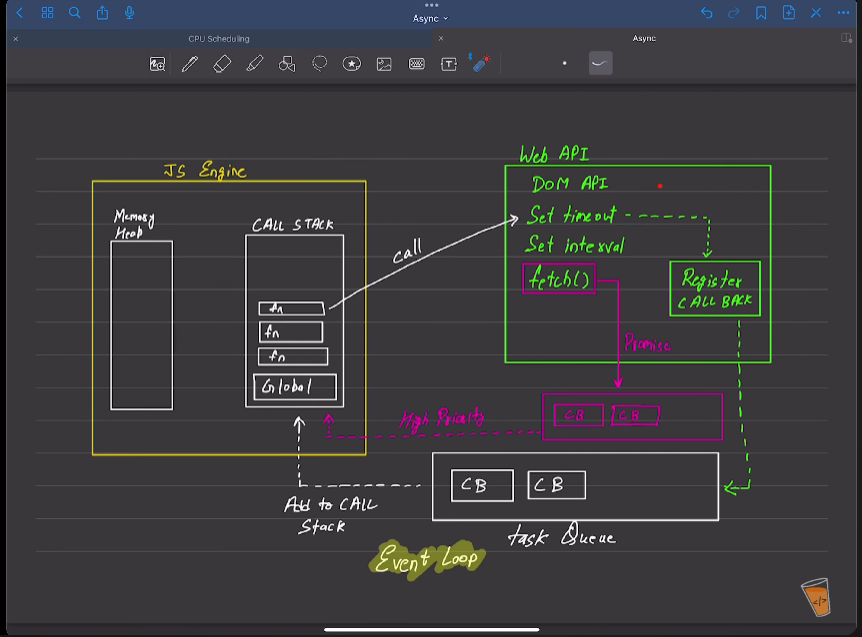 Async
CPU Scheduling
Async
JS Engine
Memory
Heap
CALL STACK
fn
fn
fn
Global
call
Web API
DOM API
Set timeout
Set interval
fetch()
Register
CALL BACK
Promise
CB
CB
High Priority
Add to CALL
Stack
CB
CB
task Queue
Event Loop